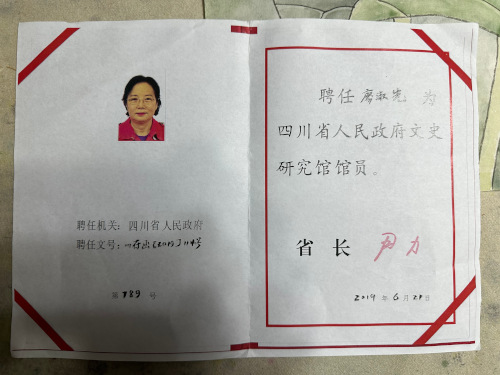 聘任机关：四川省人民政府
聘任文号：川府函[2019]114号
第 789 号
聘任 廖淑尧 为
四川省人民政府文史
研究馆馆员。
省 长 尹力
2019 年 6 月 21 日